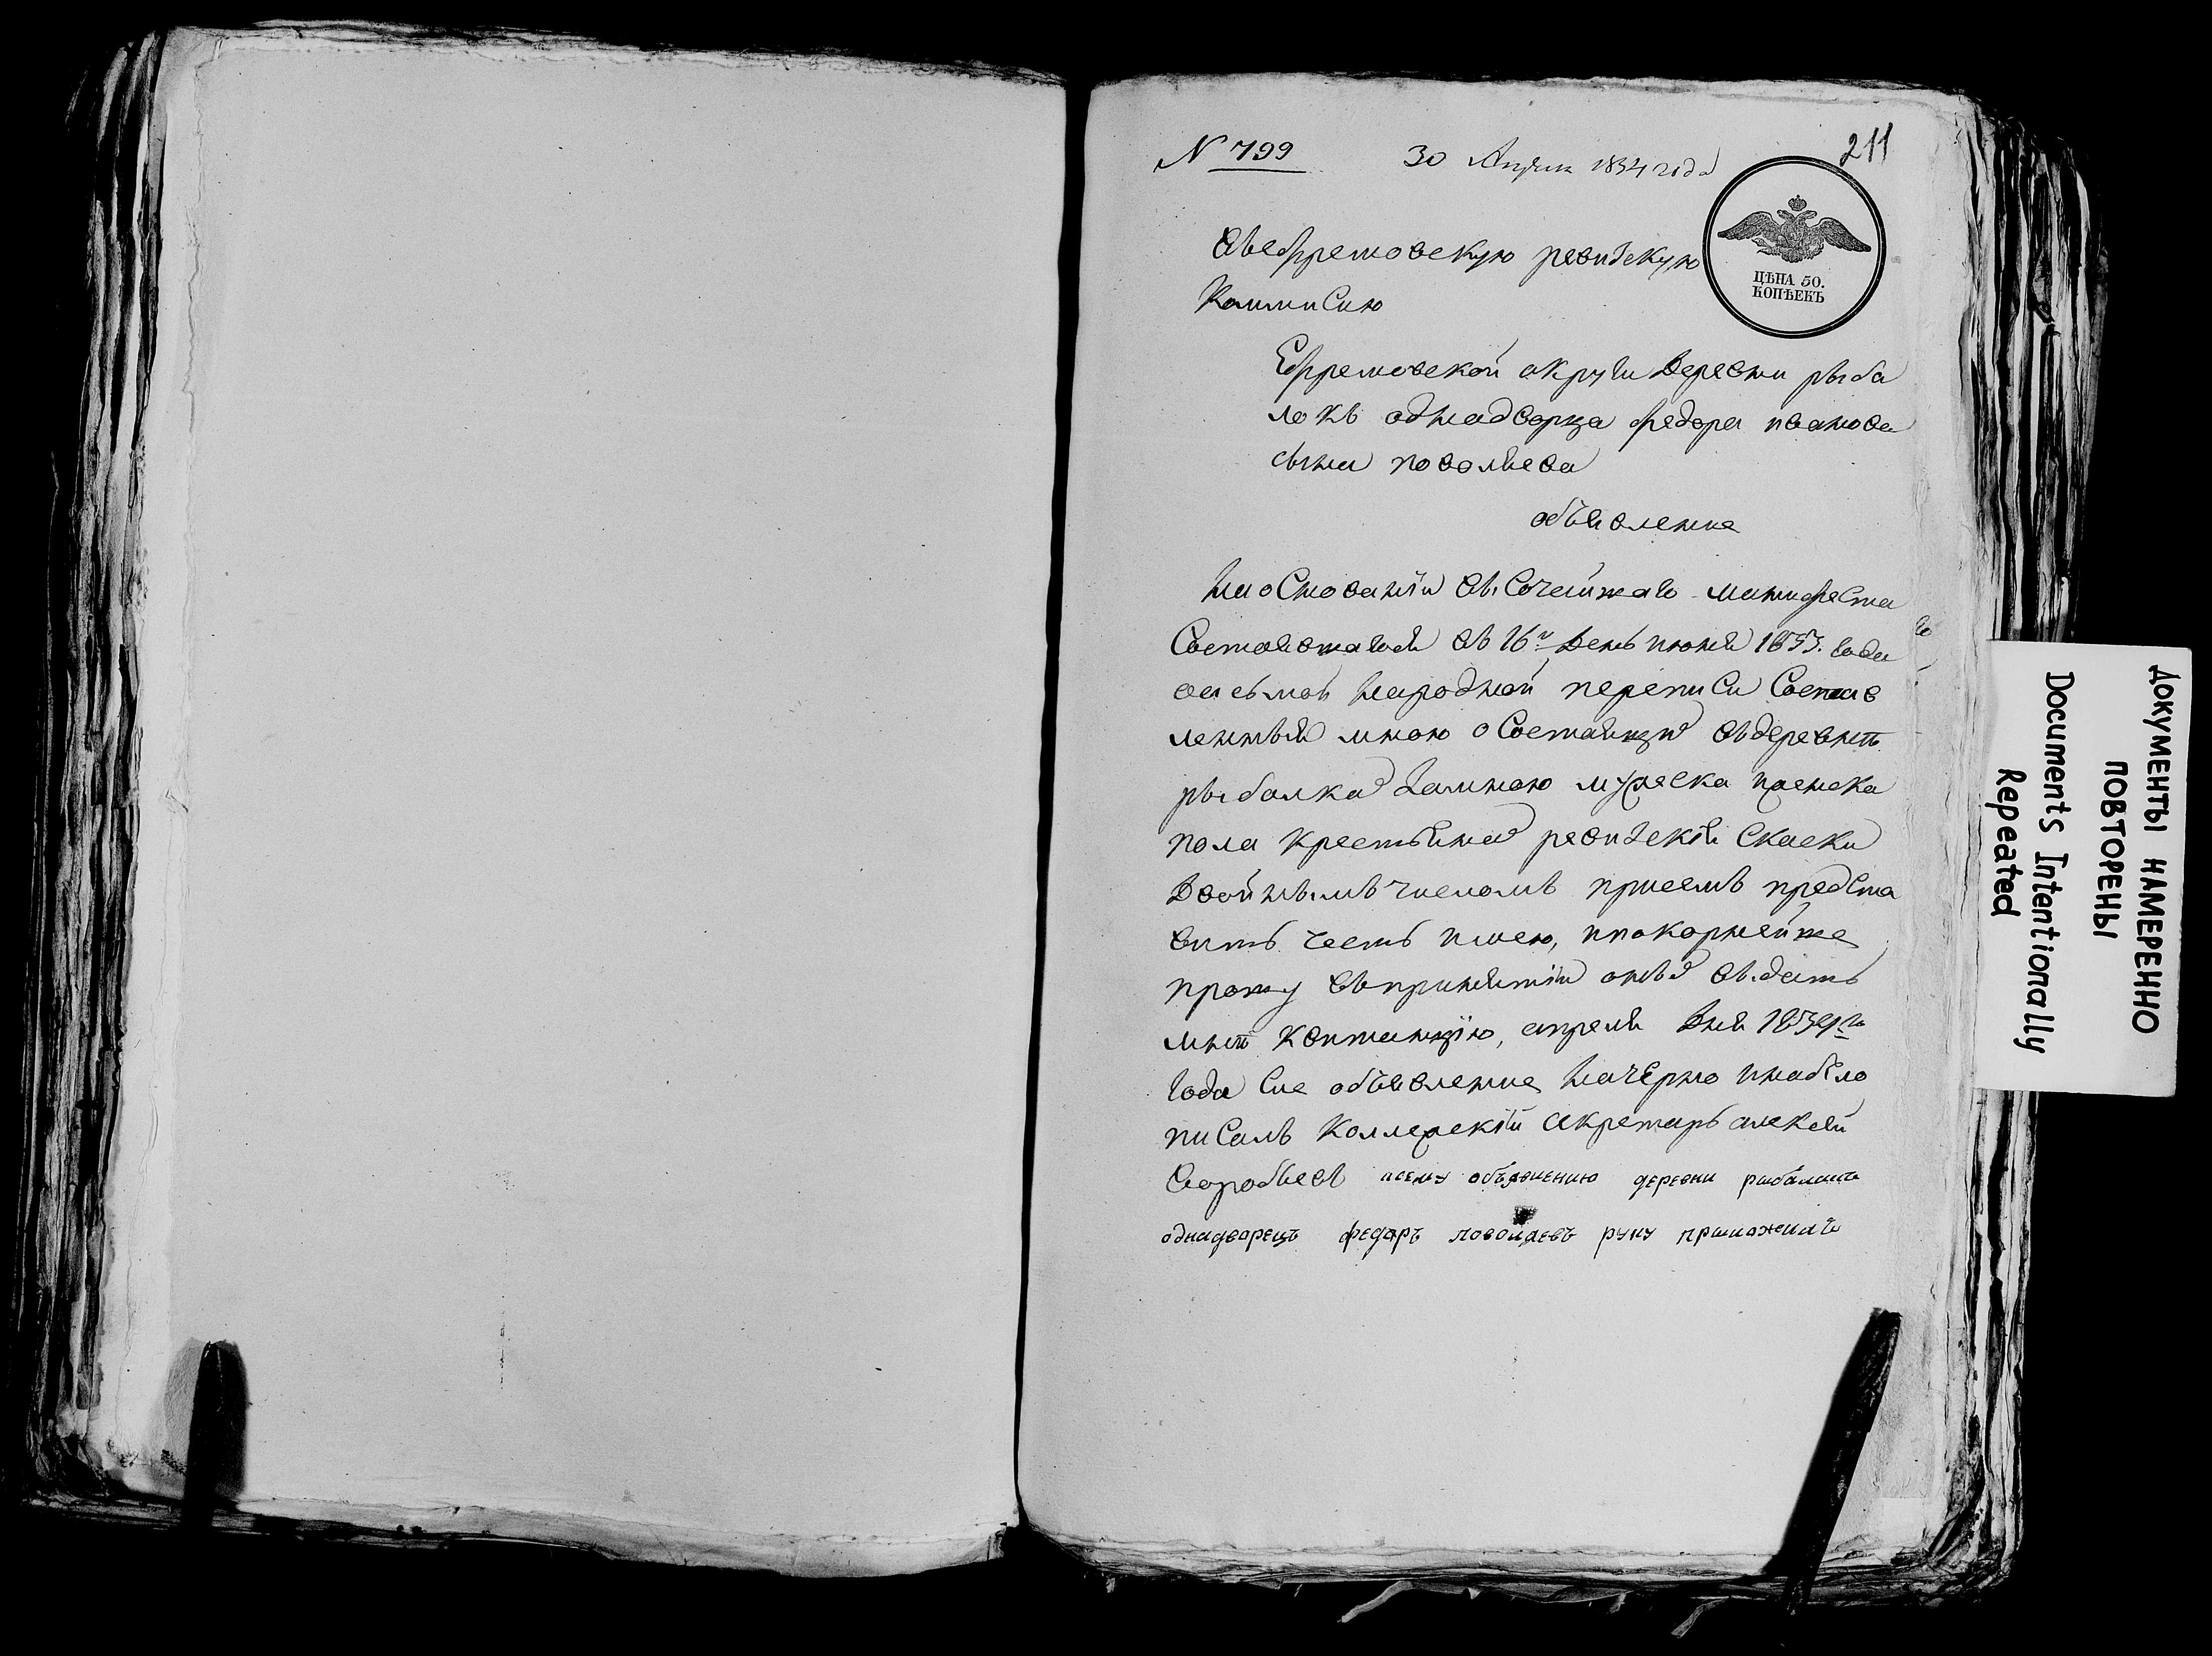 N 799 30 Апреля 1834 года 211
ЦѢНА 50.
КОПѢЕКЪ
Авефремовскую ревизскую
Коммисию
Ефремовской округи деревни рыба
локъ однадворца федора иванова
сына поволяева
объявление
На основании высочайшаго манифеста
Состоявшагося въ 16й день июня 1833. года
осьмой народной переписи Состав
ленныя мною о Состаящих въ деревнѣ
рыбалках Замною мужеска иженска
пола крестьянах ревизскія Скаски
двойнымъ числомъ присемъ предста
вить честь имею, ипокорнейше
прошу въпринятіи оных выдать
мнѣ квитанцию, апреля дня 1834го
года Сие объявление начерно инабело
писалъ Коллежскій секретарь алексей
Воробьевъ ксему объявлению деревни рыбалакъ
однадворецъ федаръ поволяевъ руку приложилъ
ДОКУМЕНТЫ НАМЕРЕННО
ПОВТОРЕНЫ
Documents Intentionally
Repeated